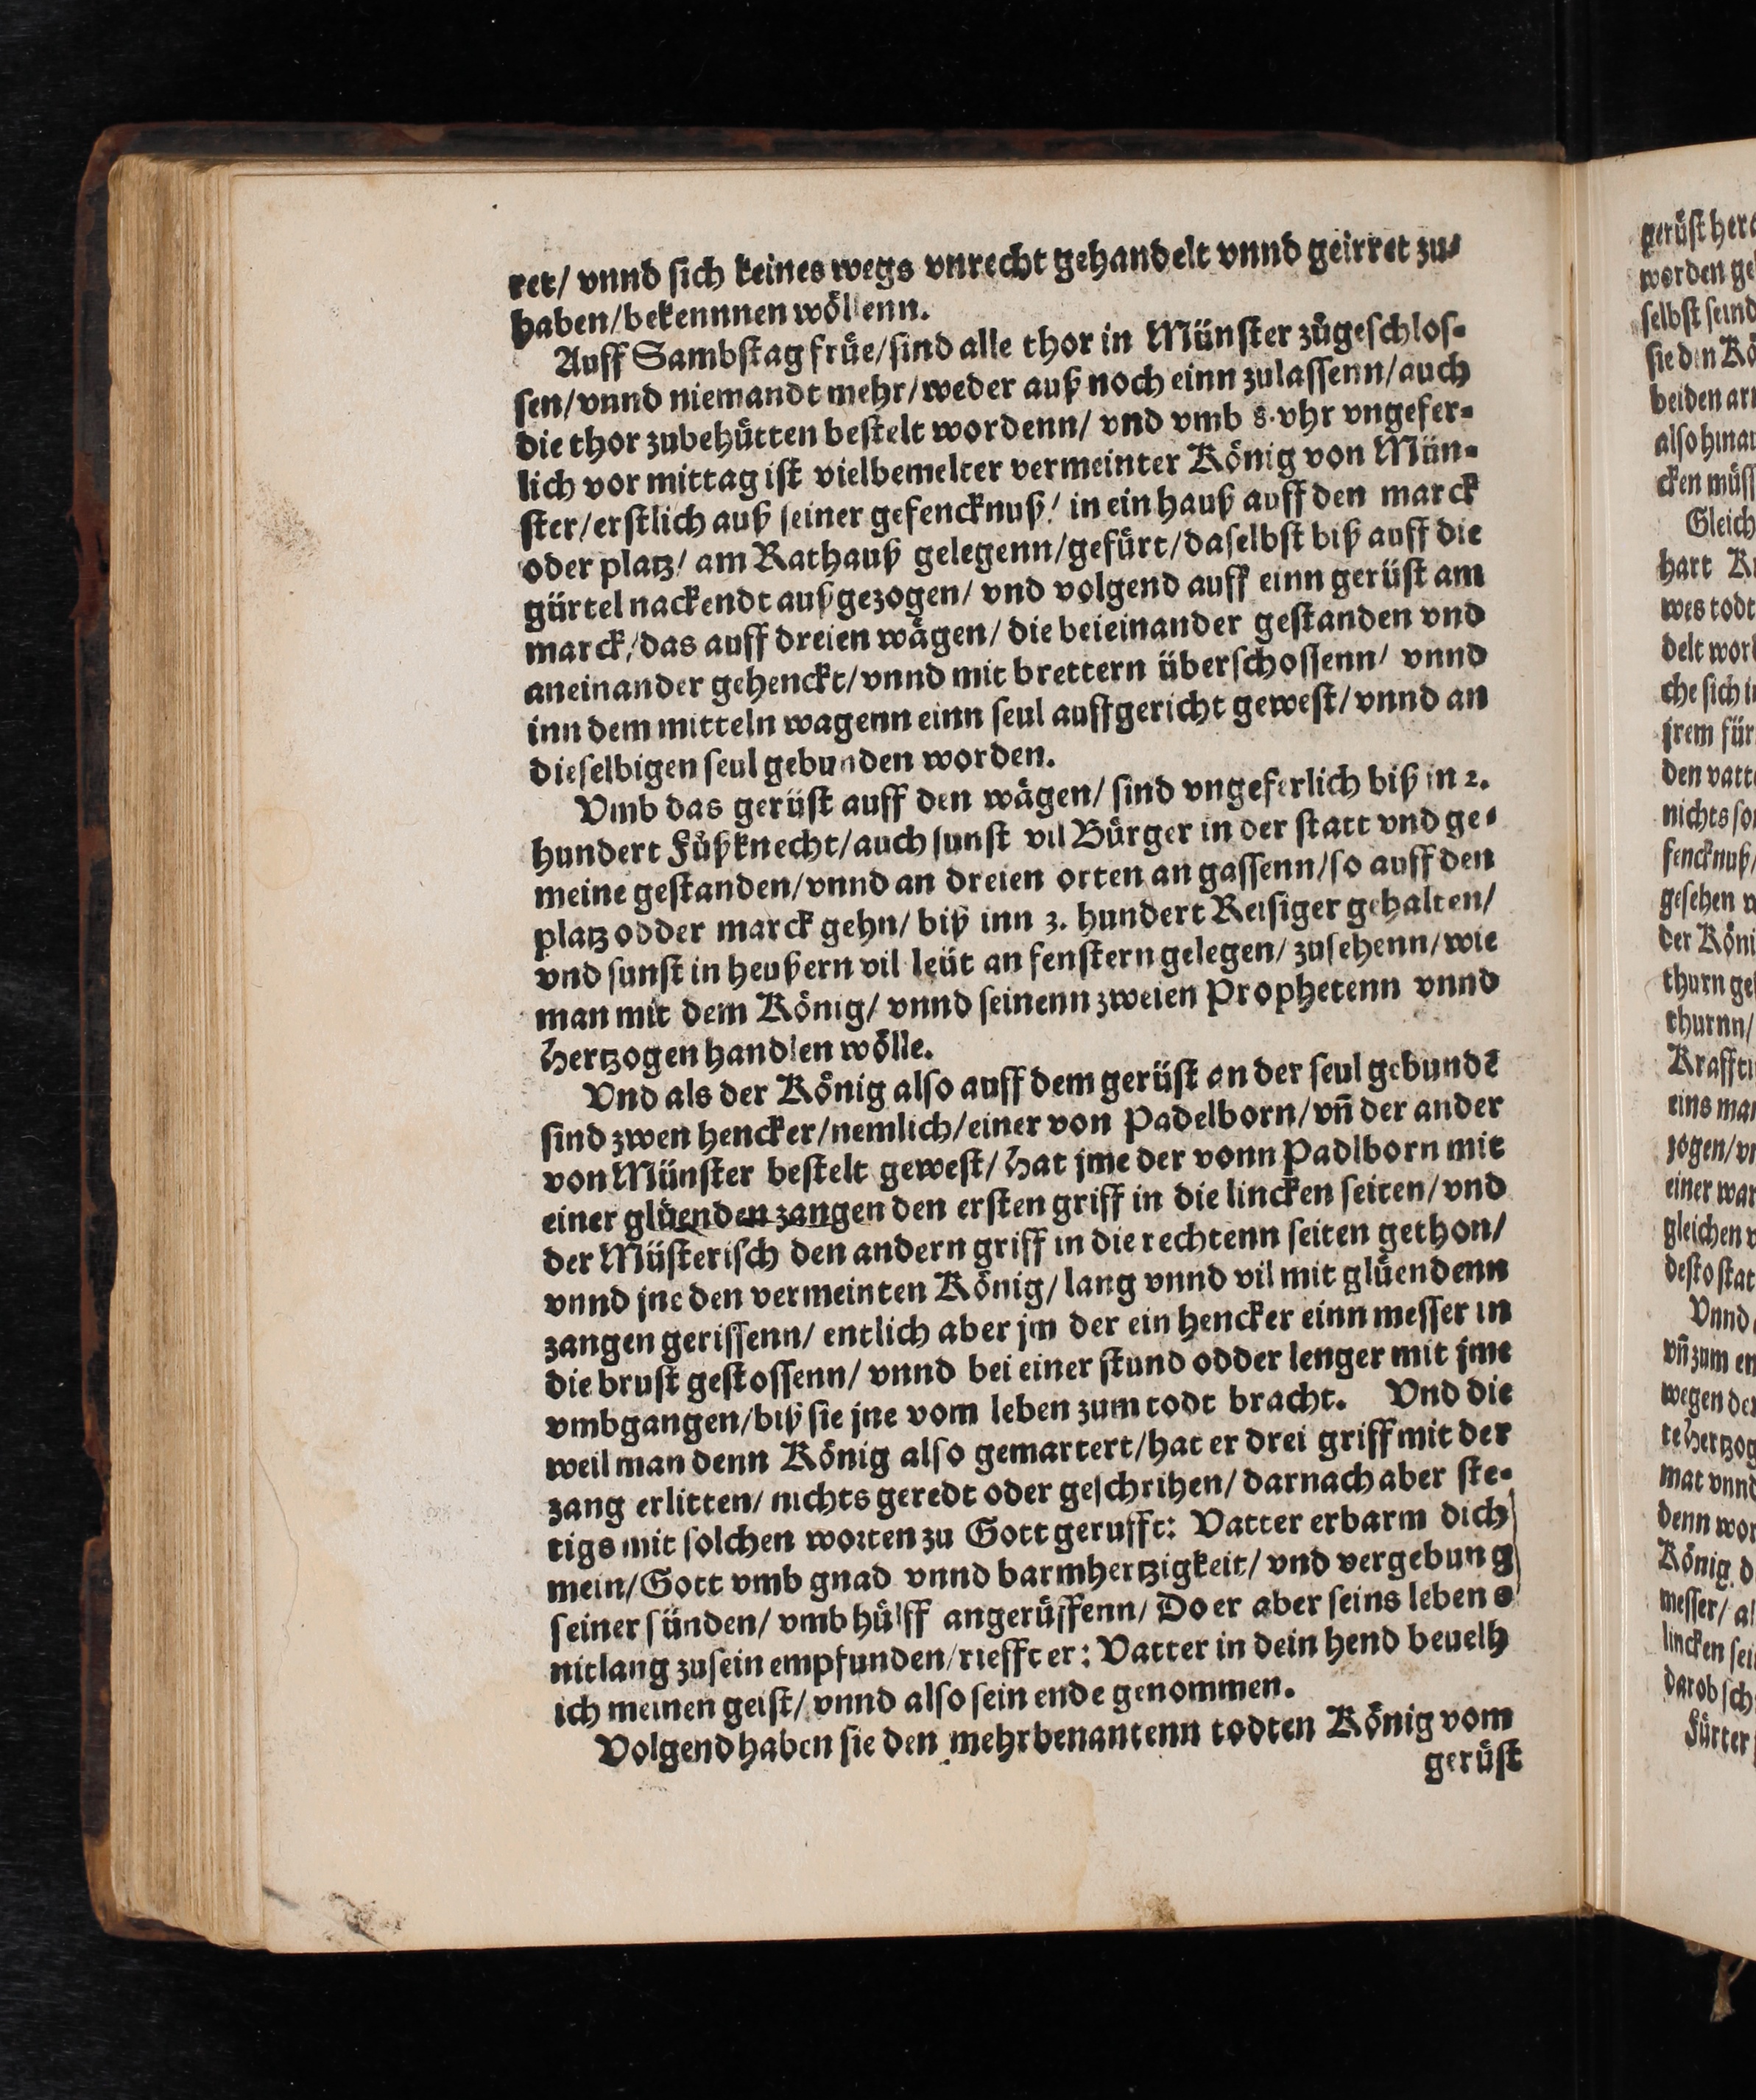 ret/ vnnd sich keines wegs vnrecht gehandelt vnnd geirret zu⸗
haben/bekennnen wöllenn.
Auff Sambstag früe/sind alle thor in Münster zůgeschlos⸗
sen/vnnd niemandt mehr/weder auß noch einn zulassenn/auch
die thor zubehütten bestelt wordenn/ vnd vmb 8.vhr vngefer⸗
lich vor mittag ist vielbemelter vermeinter König von Mün⸗
ster/erstlich auß seiner gefencknuß/ in ein hauß auff den marck
oder platz/ am Rathauß gelegenn/gefürt/daselbst biß auff die
gürtel nackendt außgezogen/ vnd volgend auff einn gerüst am
marck/das auff dreien wägen/ die beieinander gestanden vnd
aneinander gehenckt/vnnd mit brettern überschossenn/ vnnd
inn dem mitteln wagenn einn seul auffgericht gewest/vnnd an
dieselbigen seul gebunden worden.
Vmb das gerüst auff den wägen/ sind vngeferlich biß in 2.
hundert Fůßknecht/auch sunst vil Bürger in der statt vnd ge⸗
meine gestanden/vnnd an dreien orten an gassenn/so auff den
platz odder marck gehn/ biß inn 3. hundert Reisiger gehalten/
vnd sunst in heußern vil leüt an fenstern gelegen/ zusehenn/wie
man mit dem König/ vnnd seinenn zweien Prophetenn vnnd
Hertzogen handlen wölle.
Vnd als der König also auff dem gerüst an der seul gebundē
sind zwen hencker/nemlich/einer von Padelborn/vñ der ander
von Münster bestelt gewest/ Hat jme der vonn Padlborn mit
einer glüenden zangen den ersten griff in die lincken seiten/vnd
der Müsterisch den andern griff in die rechtenn seiten gethon/
vnnd jne den vermeinten König/ lang vnnd vil mit glüendenn
zangen gerissenn/ entlich aber jm der ein hencker einn messer in
die brust gestossenn/ vnnd bei einer stund odder lenger mit jme
vmbgangen/biß sie jne vom leben zum todt bracht. Vnd die
weil man denn König also gemartert/hat er drei griff mit der
zang erlitten/ nichts geredt oder geschrihen/ darnach aber ste⸗
tigs mit solchen worten zu Gott gerufft: Vatter erbarm dich
mein/Gott vmb gnad vnnd barmhertzigkeit/ vnd vergebung
seiner sünden/ vmb hülff angerüffenn/ Do er aber seins lebens
nit lang zusein empfunden/riefft er: Vatter in dein hend beuelh
ich meinen geist/ vnnd also sein ende genommen.
Volgend haben sie den mehrbenantenn todten König vom
gerüst
gerüst
worden
selbst seind
sie den
beiden
also
cken
Gleich
hart
wes todt
delt
che sich
jrem für
den
nichts
fencknuß/
gesehen
der
thurn
thurnn/
eins
zogen/
einer
gleichen
desto
Vnnd
vñ zum
wegen
mat vnnd
denn
König
messer/
lincken
darob
Fürter